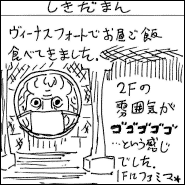 しきだまん
ヴィーナスフォートでお昼ご飯
食べてきました。
2Fの
雰囲気が
ゴゴゴゴゴ
…という感じ
でした。
1Fはファミマ